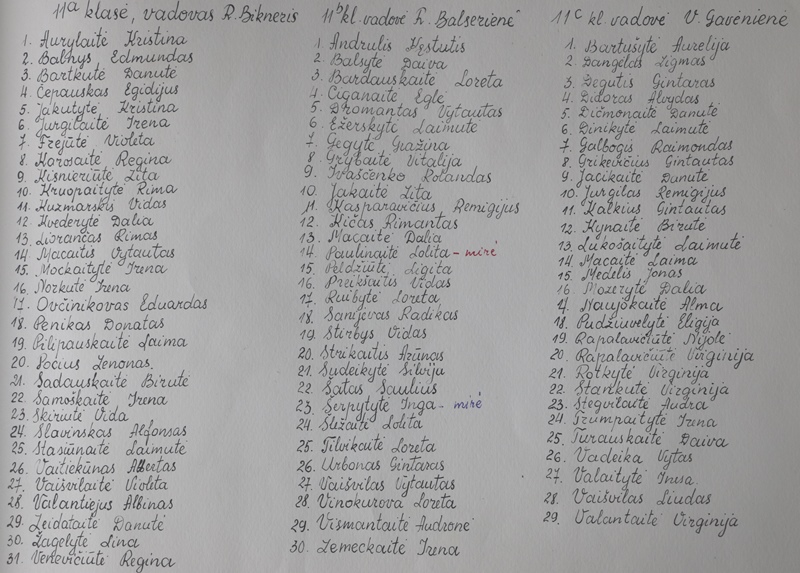 11ᵃ klasė, vadovas R. Bikneris
1. Aurylaitė Kristina
2. Balnys, Edmundas
3. Bartkutė Danutė
4. Čepauskas Egidijus
5. Jakutytė Kristina
6. Jurgilaitė Irena
7. Frejūtė Violeta
8. Karosaitė Regina
9. Kisnieriūtė Zita
10. Kruopaitytė Rima
11. Kuzmarskis Vidas
12. Kvederytė Dalia
13. Liorančas Rimas
14. Macaitis Vytautas
15. Mockaitytė Irena
16. Norkutė Irena
17. Ovčinikovas Eduardas
18. Penikas Donatas
19. Pilipauskaitė Laima
20. Pocius Zenonas
21. Sadauskaitė Birutė
22. Samoškaitė Irena
23. Skiriutė Vida
24. Slavinskas Alfonsas
25. Stasiūnaitė Laimutė
26. Vaitiekūnas Albertas
27. Vaišvilaitė Violeta
28. Valantiejus Albinas
29. Zeidataitė Danutė
30. Žagelytė Lina
31. Venevičiūtė Regina
11ᵇ kl. vadovė R. Balserienė
1. Andrulis Kęstutis
2. Balsytė Daiva
3. Bardauskaitė Loreta
4. Čiganaitė Eglė
5. Dromantas Vytautas
6. Ežerskytė Laimutė
7. Gegytė Gražina
8. Grybaitė Vitalija
9. Ivaščenko Rolandas
10. Jakaitė Zita
11. Kasparavičius Remigijus
12. Kičas Rimantas
13. Macaitė Dalia
14. Paulinaitė Lolita - mirė
15. Peldžiūtė Ligita
16. Preikšaitis Vidas
17. Ruibytė Loreta
18. Sanijevas Radikas
19. Stirbys Vidas
20. Strikaitis Arūnas
21. Sudeikytė Silvija
22. Šatas Saulius
23. Šerpytytė Inga - mirė
24. Šležaitė Lolita
25. Tilvikaitė Loreta
26. Urbonas Gintaras
27. Vaišvilas Vytautas
28. Vinokurova Loreta
29. Vismantaitė Audronė
30. Zemeckaitė Irena
11ᶜ kl. vadovė V. Gavėnienė
1. Bartušytė Aurelija
2. Dangelas Zigmas
3. Degutis Gintaras
4. Didoras Alvydas
5. Dičmonaitė Danutė
6. Dinikytė Laimutė
7. Galbogis Raimondas
8. Grikevičius Gintautas
9. Jacikaitė Danutė
10. Jurgilas Remigijus
11. Kalkius Gintautas
12. Kynaitė Birutė
13. Lukošaitytė Laimutė
14. Macaitė Laima
15. Medelis Jonas
16. Mozerytė Dalia
17. Naujokaitė Alma
18. Pudžiuvelytė Eligija
19. Rapalavičiūtė Nijolė
20. Rapalavičiūtė Virginija
21. Rotkytė Virginija
22. Stankutė Virginija
23. Stegvilaitė Audra
24. Trumpaitytė Irena
25. Turauskaitė Daiva
26. Vadeika Vytas
27. Valaitytė Inesa
28. Vaišvilas Liudas
29. Valantaitė Virginija